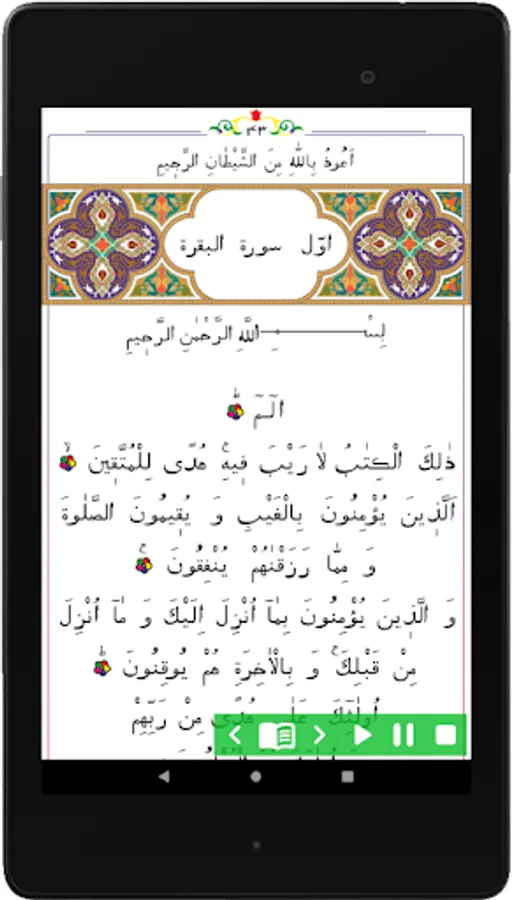 ۲۴۳
اَعُوذُ بِاللّٰهِ مِنَ الشَّيْطَانِ الرَّجٖيمِ
اوّل سورة البقرة
بِسْـــــمِ اللّٰهِ الرَّحْمٰنِ الرَّحٖيمِ
الٓمٓ ۚ
ذٰلِكَ الْكِتٰبُ لَا رَيْبَ فٖيهِۚ هُدًى لِلْمُتَّقٖينَۙ
اَلَّذٖينَ يُؤْمِنُونَ بِالْغَيْبِ وَ يُقٖيمُونَ الصَّلٰوةَ
وَ مِمَّا رَزَقْنٰهُمْ يُنْفِقُونَۙ
وَ الَّذٖينَ يُؤْمِنُونَ بِمَٓا اُنْزِلَ اِلَيْكَ وَ مَٓا اُنْزِلَ
مِنْ قَبْلِكَۚ وَ بِالْاٰخِرَةِ هُمْ يُوقِنُونَۜ
اُولٰٓئِكَ عَلٰى هُدًى مِنْ رَبِّهِمْ